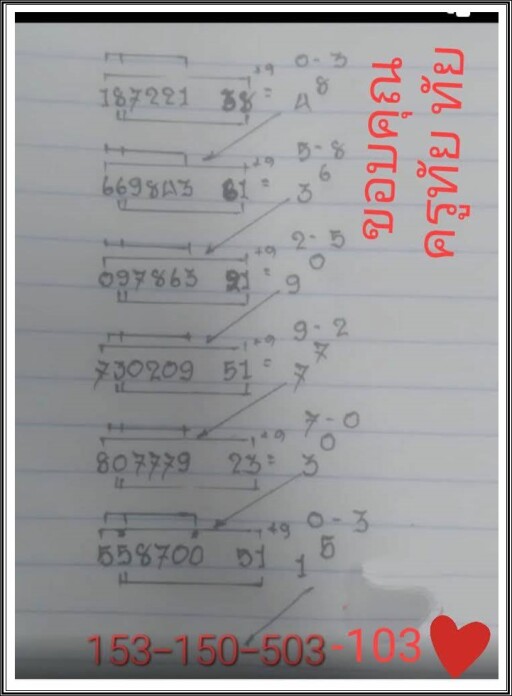 0-3
+9
187221 38 = 4 8
5-8
+9
669843 61 = 3 6
2-5
+9
097863 21 = 9 0
9-2
+9
730209 51 = 7 7
7-0
+9
807779 23 = 3 0
0-3
+9
558700 51 1 5
ขอบคุณ
ครูทัย ทัย
153-150-503-103